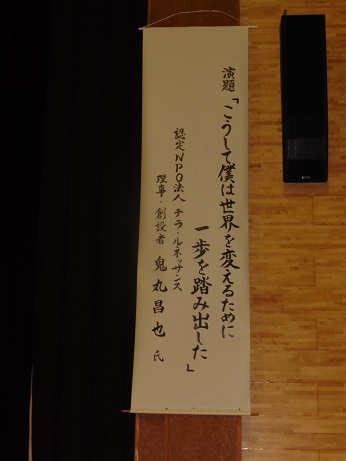 演題「こうして僕は世界を変えるために
一歩を踏み出した」
認定NPO法人 テラ・ルネッサンス
理事・創設者 鬼丸昌也 氏